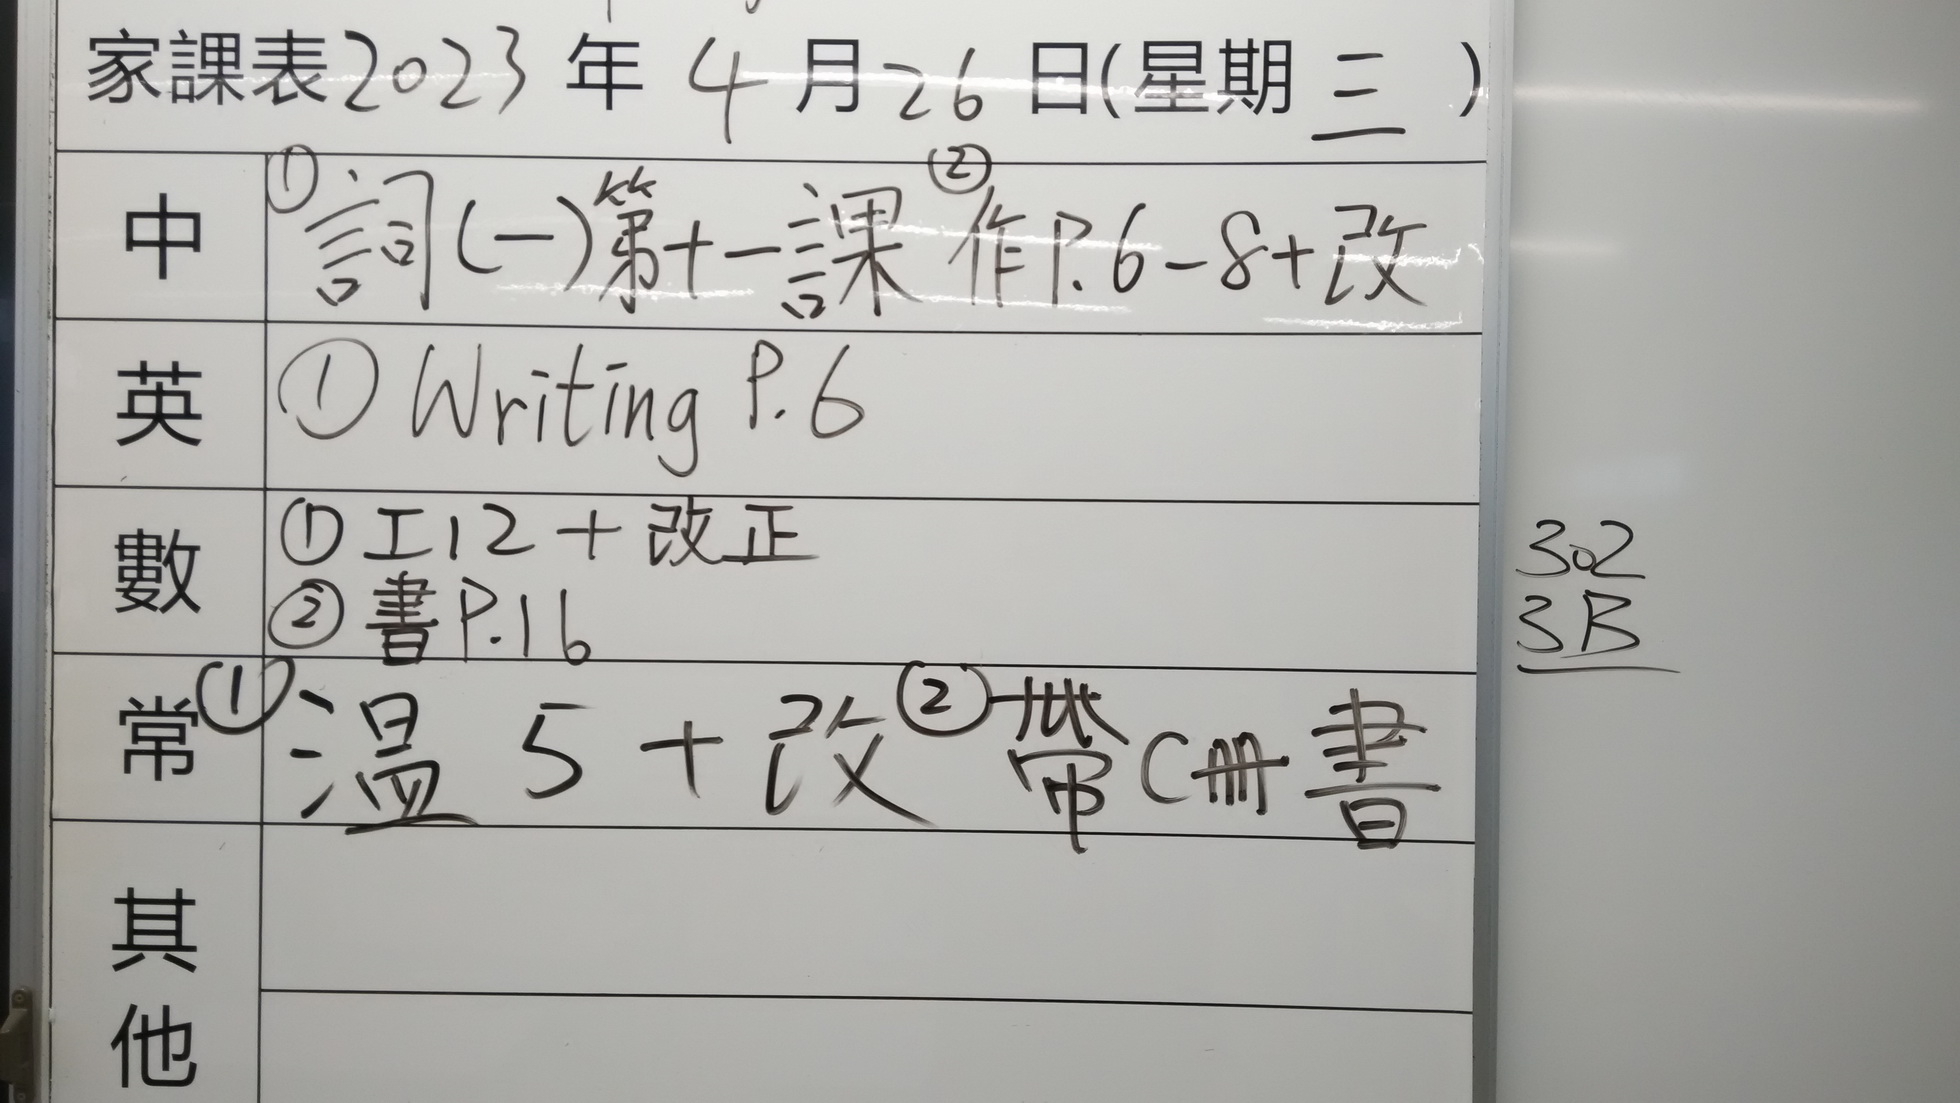 家課表2023年4月26日(星期三)
中 ①詞(一)第十一課 ②作P.6-8+改
英 ①Writing P.6
數 ①工12+改正
②書P.16
常 ①溫5+改 ②帶C冊書
其他
302
3B